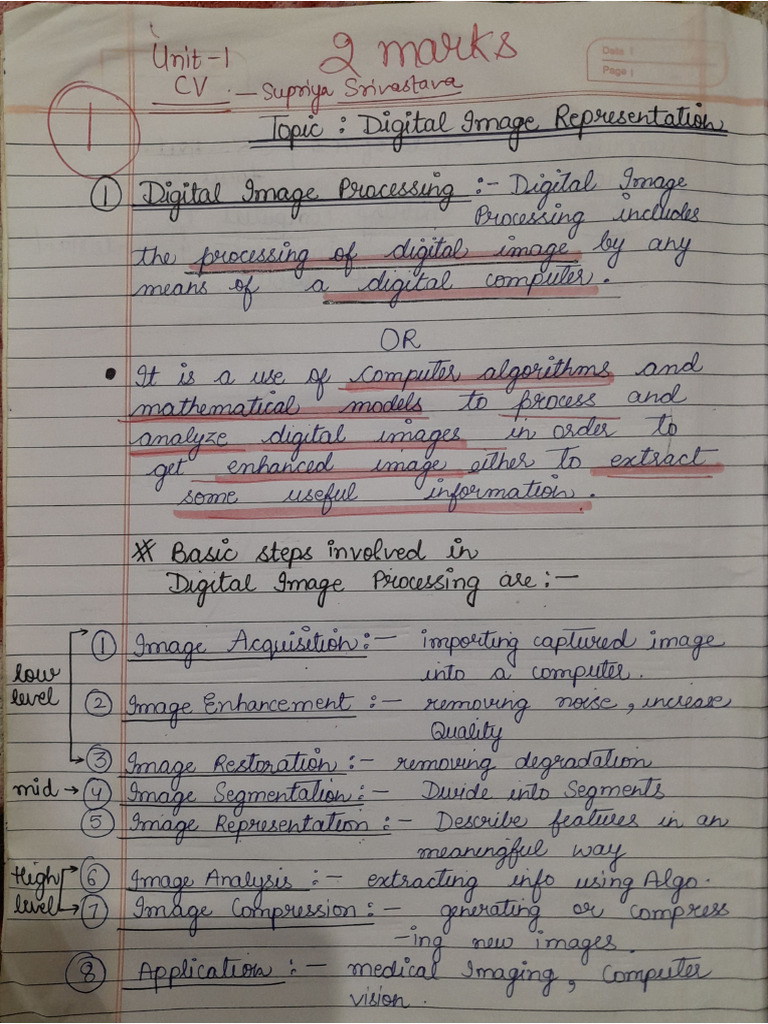 Unit-1
2 marks
Date |
Page |
CV - Supriya Srivastava
1
Topic : Digital Image Representation
① Digital Image Processing :- Digital Image
Processing includes
the processing of digital image by any
means of a digital computer.
OR
• It is a use of computer algorithms and
mathematical models to process and
analyze digital images in order to
get enhanced image either to extract
some useful information.
* Basic steps involved in
Digital Image Processing are :-
① Image Acquisition :- importing captured image
into a computer.
low
level
② Image Enhancement :- removing noise, increase
Quality
③ Image Restoration :- removing degradation
mid → ④ Image Segmentation :- Divide into Segments
⑤ Image Representation :- Describe features in an
meaningful way
High
level
⑥ Image Analysis :- extracting info using Algo.
⑦ Image Compression :- generating or compress
-ing new images.
⑧ Application :- medical Imaging, Computer
vision.